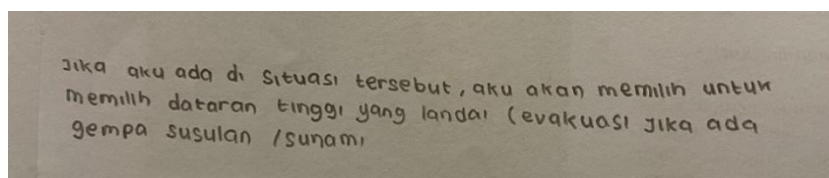 Jika aku ada di situasi tersebut, aku akan memilih untuk
memilih dataran tinggi yang landai (evakuasi jika ada
gempa susulan / sunami